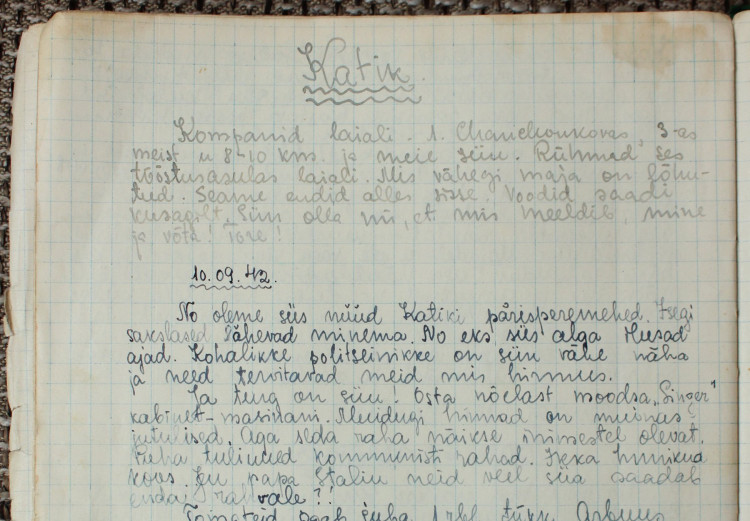 Katik.
Kompaniid laiali. 1. Chanchonkovos, 3-as
meist u 8-10 km. ja meie siin. Rühmad ses
tööstusasulas laiali. Mis vähegi maja on lõhu-
tud. Seame endid alles sisse. Voodid saadi
kusagilt. Siin olla nii, et mis meeldib, mine
ja võta! Tore!
10.09.42.
No oleme siis nüüd Katiki pärisperemehed. Isegi
sakslased lähevad minema. No eks siis alga ilusad
ajad. Kohalikke politseinikke on siin vähe näha
ja need tervitavad meid mis hirmus.
Ja turg on siin! Osta nõelast moodsa „Singer"
kabinet-masinani. Muidugi hinnad on muinas-
jutulised. Aga seda raha näikse inimestel olevat.
Puha tulinud kommunisti rahad. Terka hunnikud
koos. Ju papa Staliin neid veel siia saadab
enda rahvale?!
Tomateid saab juba 1 rbl. tükk. Arbuus